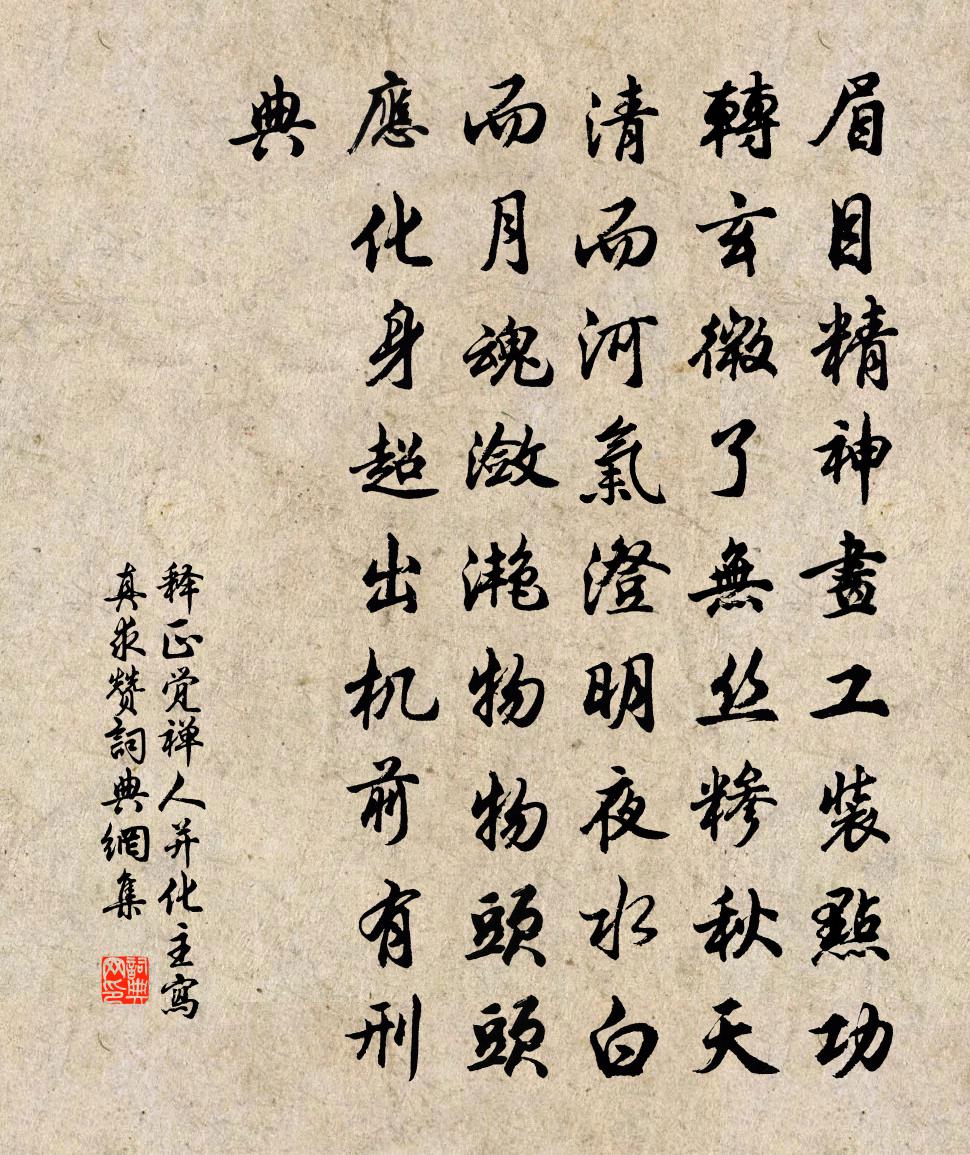 眉目精神畫工裝點功
轉玄微了無丝糝秋天
清而河氣澄明夜水白
而月魂瀲滟物物頭頭
應化身超出机前有刑
典
释正觉禅人并化主寫
真求赞詞典網集
詞典网印